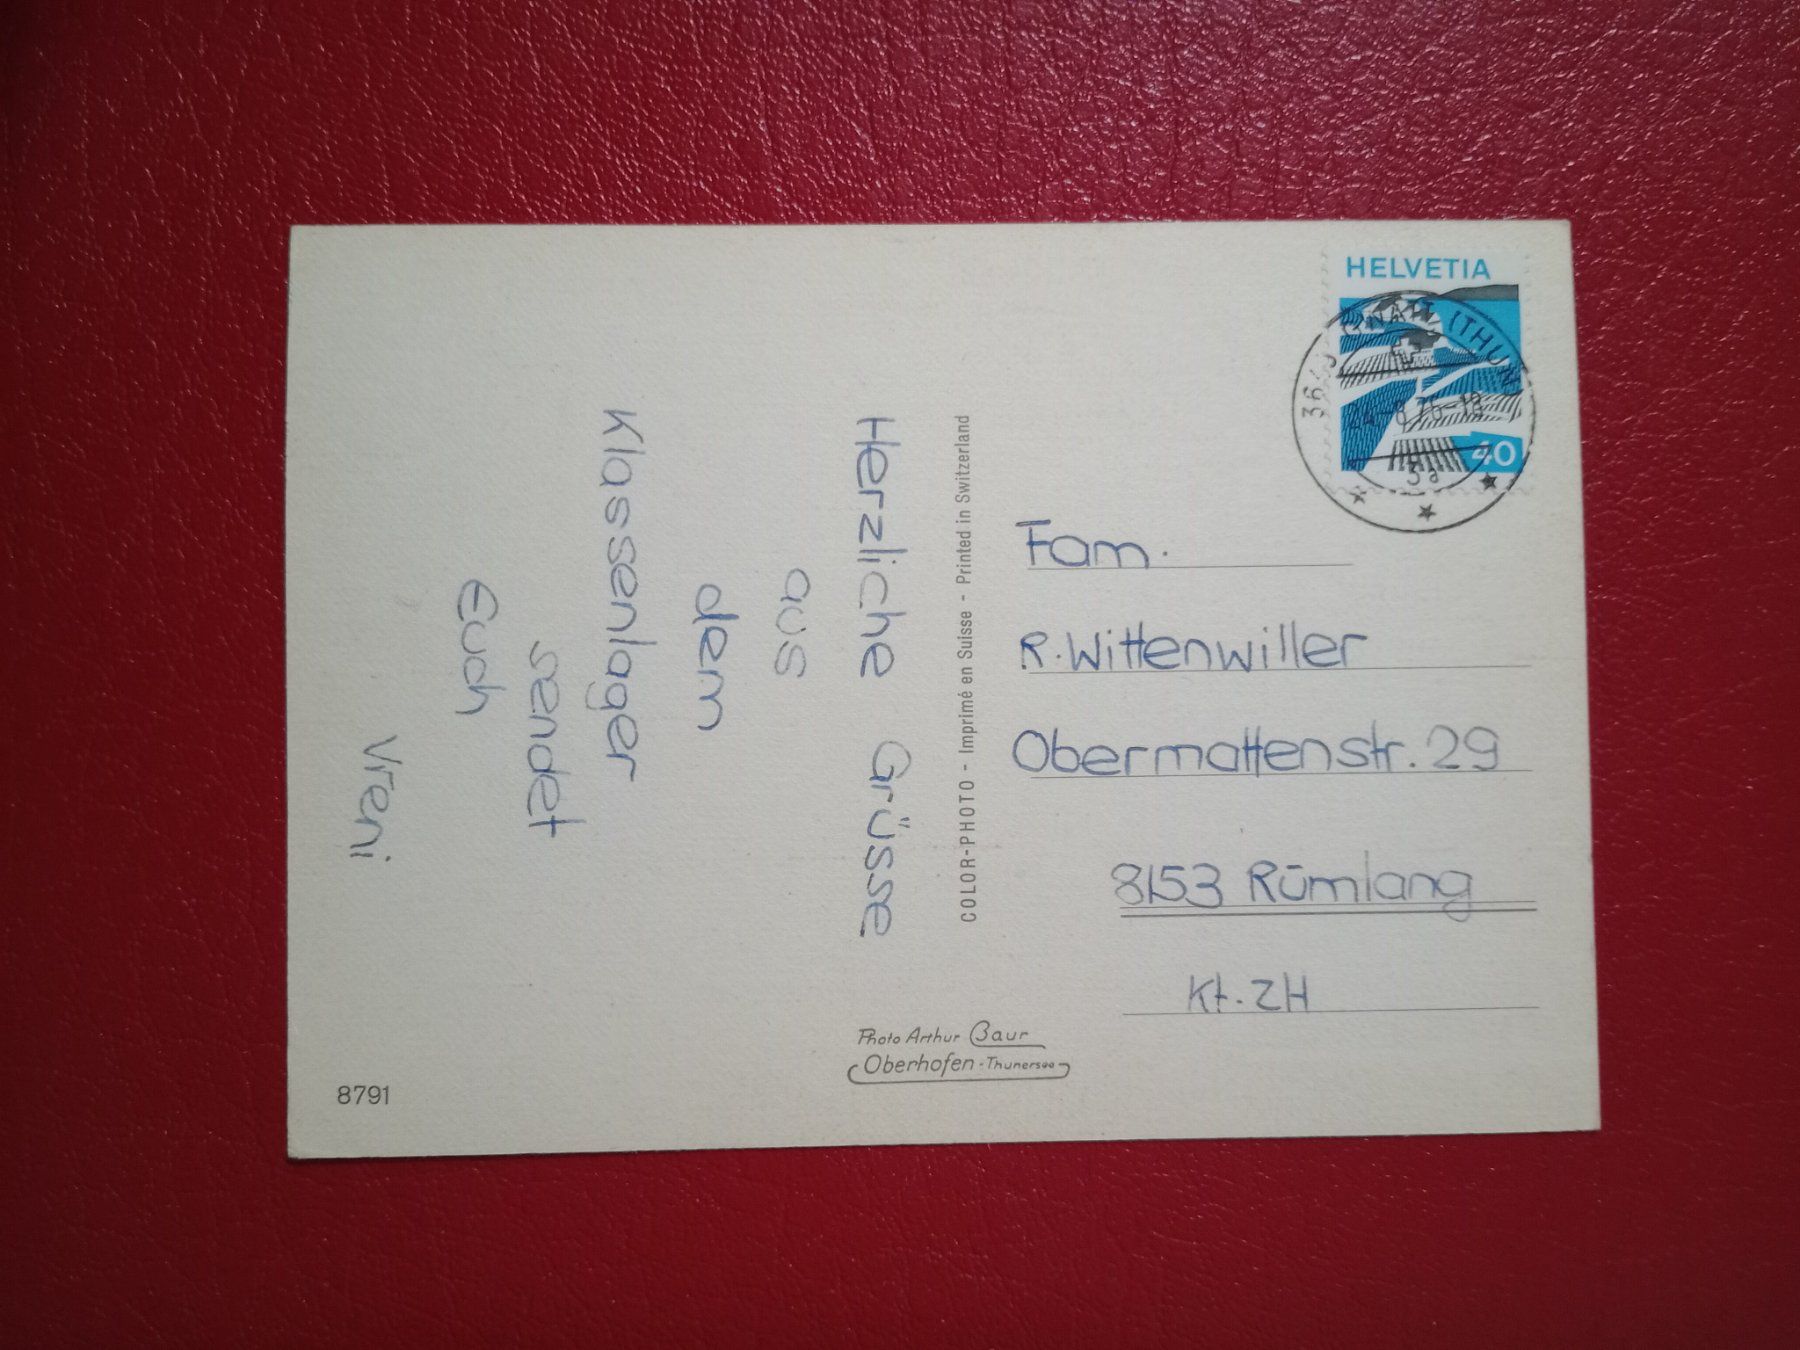 Herzliche Grüsse
aus
dem
Klassenlager
sendet
Euch
Vreni
COLOR-PHOTO - Imprimé en Suisse - Printed in Switzerland
HELVETIA
40
(THUN)
3a
Fam.
R. Wittenwiller
Obermattenstr. 29
8153 Rümlang
Kt. ZH
Photo Arthur Baur
Oberhofen - Thunersee
8791